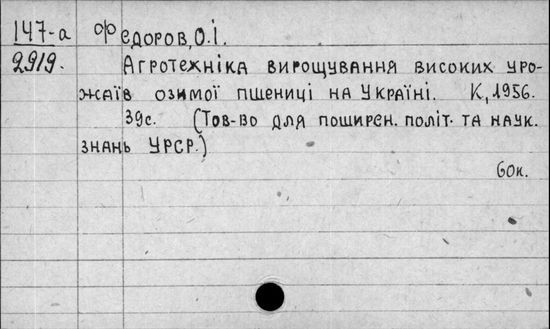 147-а Федоров, О.І.
2919. Агротежніка вирощування високих уро-
жаїв озимої пшениці на Україні. К, 1956.
39с. (Тов-во для поширен. політ. та наук.
знань УРСР.)
60к.